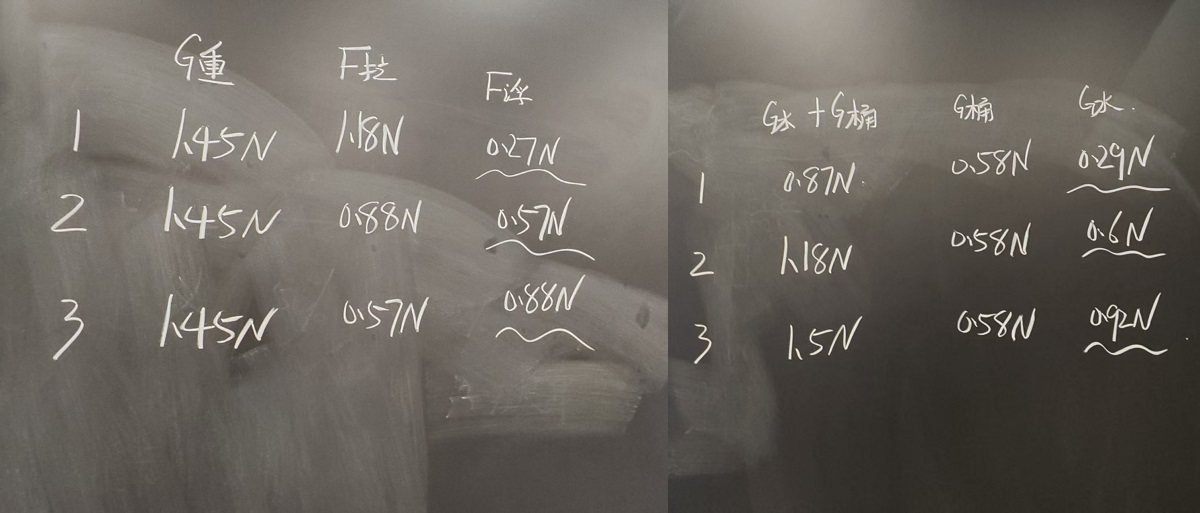 G重 F拉 F浮
1 1.45N 1.18N 0.27N
2 1.45N 0.88N 0.57N
3 1.45N 0.57N 0.88N
G水+G桶 G桶 G水.
1 0.87N. 0.58N 0.29N
2 1.18N 0.58N 0.6N
3 1.5N 0.58N 0.92N